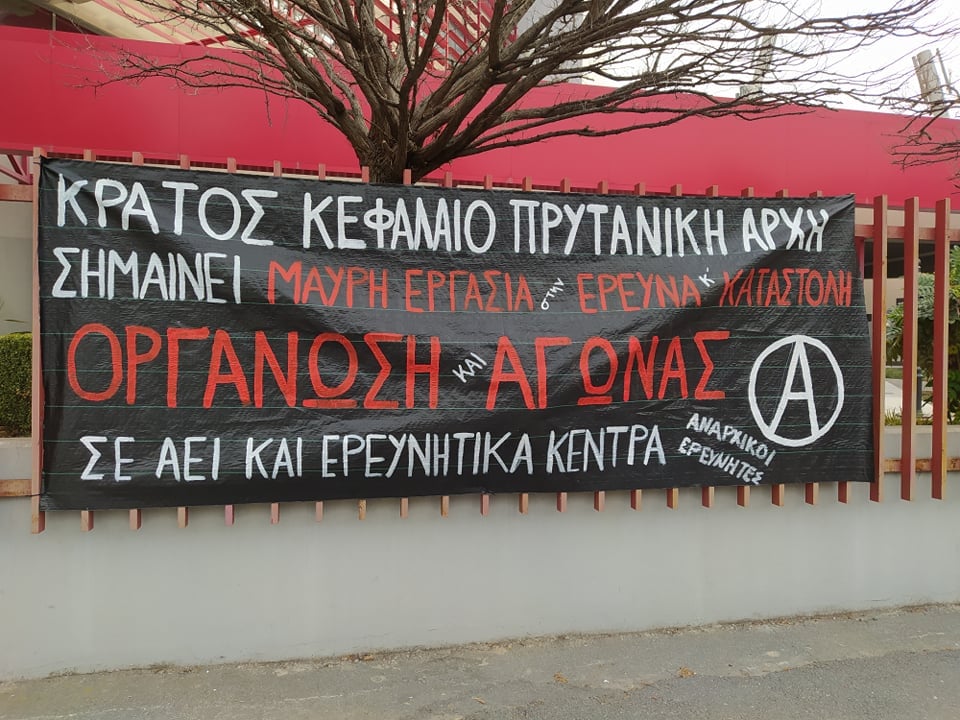 ΚΡΑΤΟΣ ΚΕΦΑΛΑΙΟ ΠΡΥΤΑΝΙΚΗ ΑΡΧΗ
ΣΗΜΑΙΝΕΙ ΜΑΥΡΗ ΕΡΓΑΣΙΑ στην ΕΡΕΥΝΑ κ' ΚΑΤΑΣΤΟΛΗ
ΟΡΓΑΝΩΣΗ ΚΑΙ ΑΓΩΝΑΣ
ΣΕ ΑΕΙ ΚΑΙ ΕΡΕΥΝΗΤΙΚΑ ΚΕΝΤΡΑ
ΑΝΑΡΧΙΚΟΙ
ΕΡΕΥΝΗΤΕΣ
A